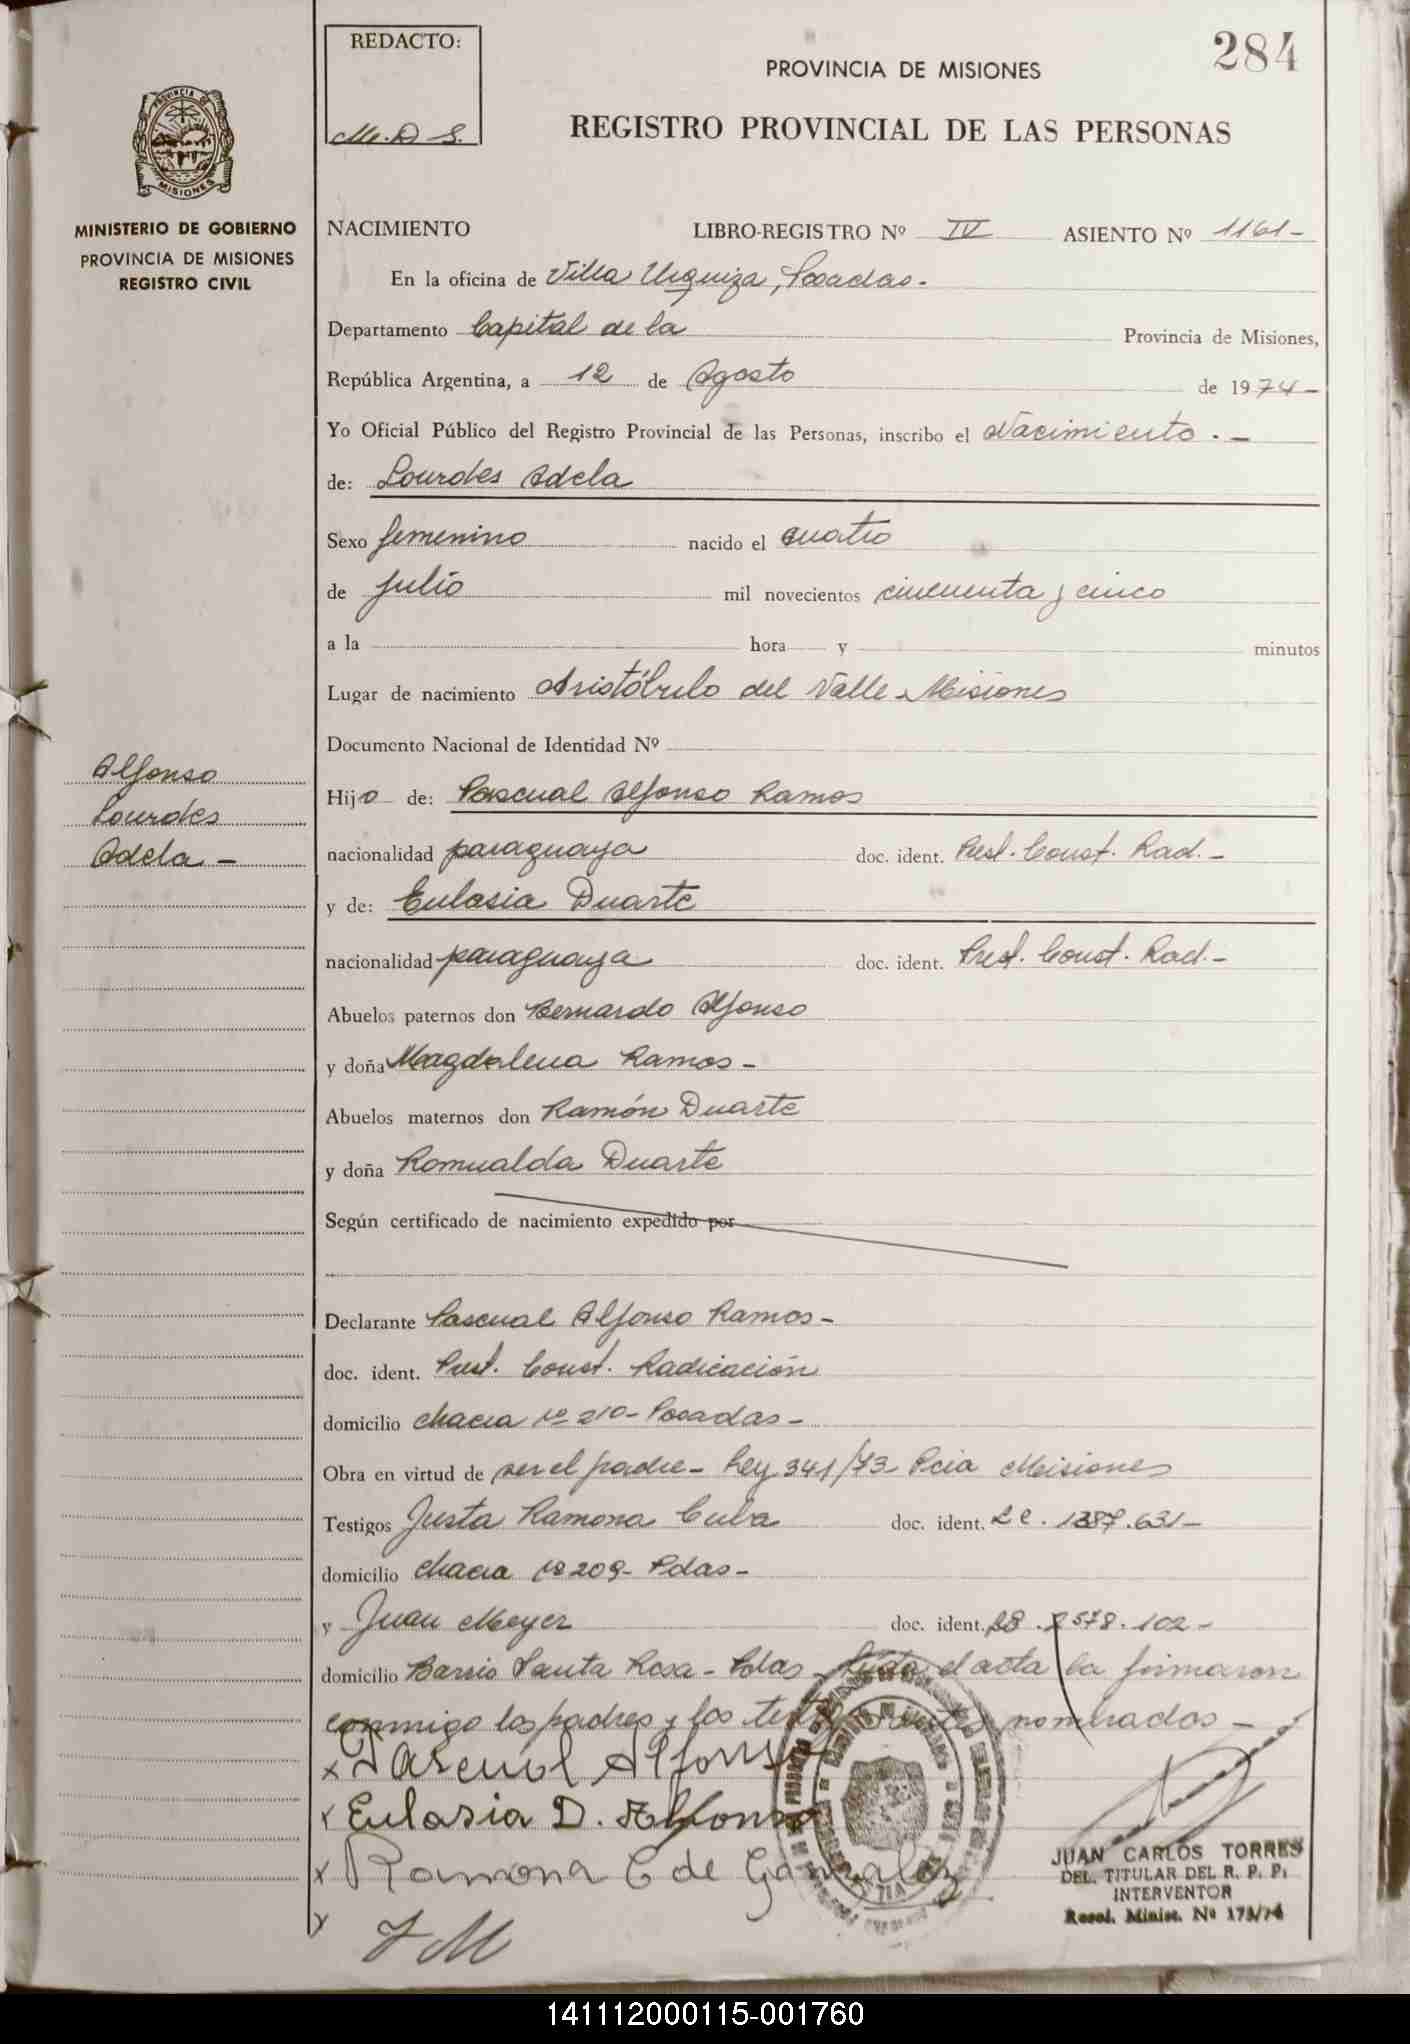 REDACTO:
M.D S.
284
PROVINCIA DE MISIONES
REGISTRO PROVINCIAL DE LAS PERSONAS
PROVINCIA DE
MISIONES
MINISTERIO DE GOBIERNO
PROVINCIA DE MISIONES
REGISTRO CIVIL
NACIMIENTO LIBRO-REGISTRO Nº IV ASIENTO Nº 1161-
En la oficina de Villa Urquiza, Posadas.
Departamento Capital de la Provincia de Misiones,
República Argentina, a 12 de Agosto de 1974-
Yo Oficial Público del Registro Provincial de las Personas, inscribo el Nacimiento.-
de: Lourdes Adela
Sexo femenino nacido el cuatro
de julio mil novecientos cincuenta y cinco
a la hora y minutos
Lugar de nacimiento Aristóbulo del Valle-Misiones
Documento Nacional de Identidad Nº
Alfonso
Lourdes
Adela-
Hijo de: Pascual Alfonso Ramos
nacionalidad paraguaya doc. ident. Prest. Const. Rad.-
y de: Eulasia Duarte
nacionalidad paraguaya doc. ident. Prest. Const. Rad.-
Abuelos paternos don Bernardo Alfonso
y doña Magdalena Ramos-
Abuelos maternos don Ramón Duarte
y doña Romualda Duarte
Según certificado de nacimiento expedido por
Declarante Pascual Alfonso Ramos-
doc. ident. Prest. Const. Radicación
domicilio chacra nº 210-Posadas-
Obra en virtud de ser el padre- Ley 341/73 Pcia Misiones
Testigos Justa Ramona Cuba doc. ident. LC. 1387.631-
domicilio chacra nº 209- Pdas-
y Juan Meyer doc. ident. 578.102-
domicilio Barrio Santa Rosa- Pdas el acta la firmaron
conmigo los padres y los nombrados-
x Pascual Alfonso
x Eulasia D. Alfonso
x Ramona C de Gonzalez
x
J M
JUAN CARLOS TORRES
DEL. TITULAR DEL R. P. P.
INTERVENTOR
Resol. Minist. Nº 173/74
141112000115-001760